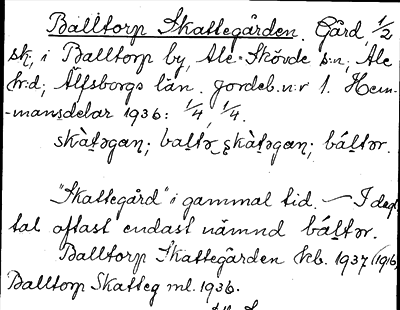 Balltorp Skattegården. Gård 1/2
sk, i Balltorp by, Ale-Skövde s:n, Ale
h:d, Älfsborgs län. Jordeb.n:r 1. Hem-
-mansdelar 1936: 1/4, 1/4.
skàt̯əgaɳ; baltə skàt̯əgaɳ; báltər.
"Skattegård" i gammal tid. — I dagl.
tal oftast endast nämnd báltər.
Balltorp Skattegården kb. 1937 (1916,
Balltorp Skatteg ml. 1936.